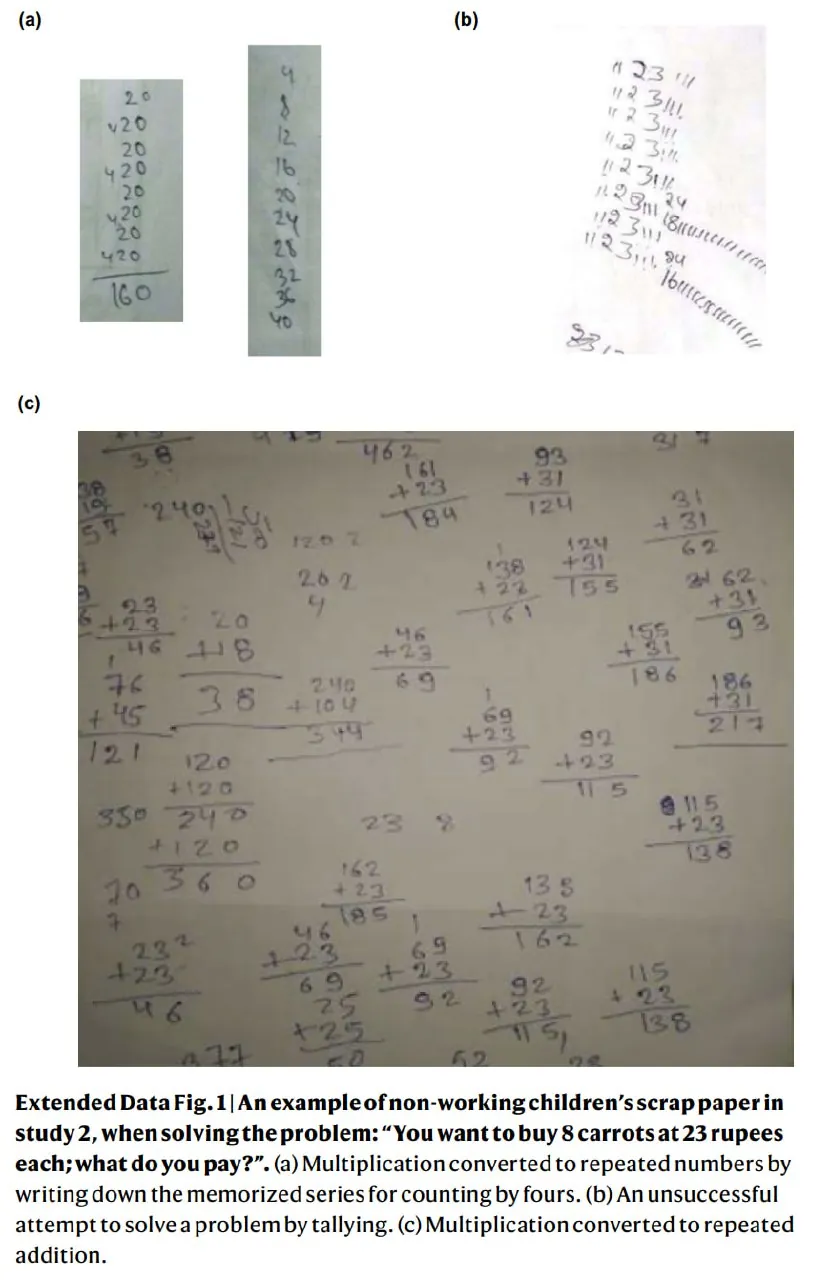 (a)
20
420
20
420
20
420
20
420
160
4
8
12
16
20
24
28
32
36
40
(b)
" 23 '''
" 23 '''
" 23 '''
" 23 '''
" 23 '''
24
" 23 ''' 18
" 23 '''
" 23 ''' 24
16
(c)
38
57
240
462
161
+23
184
93
+31
124
31
+31
62
120 2
20 2
4
1
138
+22
161
124
+31
155
62
+31
93
23
+23
46
20
+18
38
46
+23
69
155
+31
186
1
76
+45
121
240
+104
344
1
69
+23
92
92
+23
115
186
+31
217
120
+120
240
+120
360
350
23 8
115
+23
138
70
7
162
+23
185
138
+23
162
23 2
+23
46
46
+23
69
1
69
+23
92
92
+23
115
115
+23
138
25
+25
50
377
52
Extended Data Fig. 1 | An example of non-working children's scrap paper in
study 2, when solving the problem: “You want to buy 8 carrots at 23 rupees
each; what do you pay?”. (a) Multiplication converted to repeated numbers by
writing down the memorized series for counting by fours. (b) An unsuccessful
attempt to solve a problem by tallying. (c) Multiplication converted to repeated
addition.